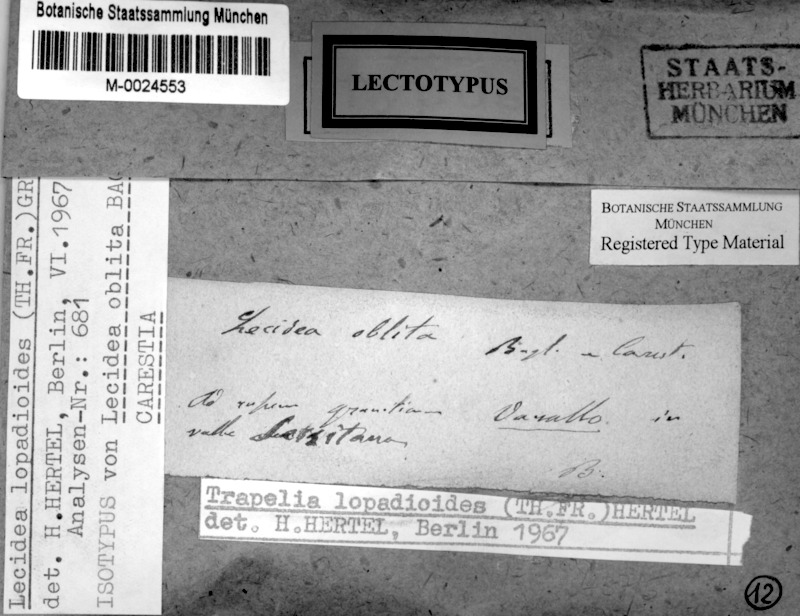 Botanische Staatssammlung München
M-0024553
LECTOTYPUS
STAATS-
HERBARIUM
MÜNCHEN
BOTANISCHE STAATSSAMMLUNG
MÜNCHEN
Registered Type Material
Lecidea lopadioides (TH.FR.)GR
det. H.HERTEL, Berlin, VI.1967
Analysen-Nr.: 681
ISOTYPUS von Lecidea oblita BAG
CARESTIA
Lecidea oblita Bagl. Carest.
Ad rupem Varallo in
valle
B.
Trapelia lopadioides (TH.FR.)HERTEL
det. H.HERTEL, Berlin 1967
12